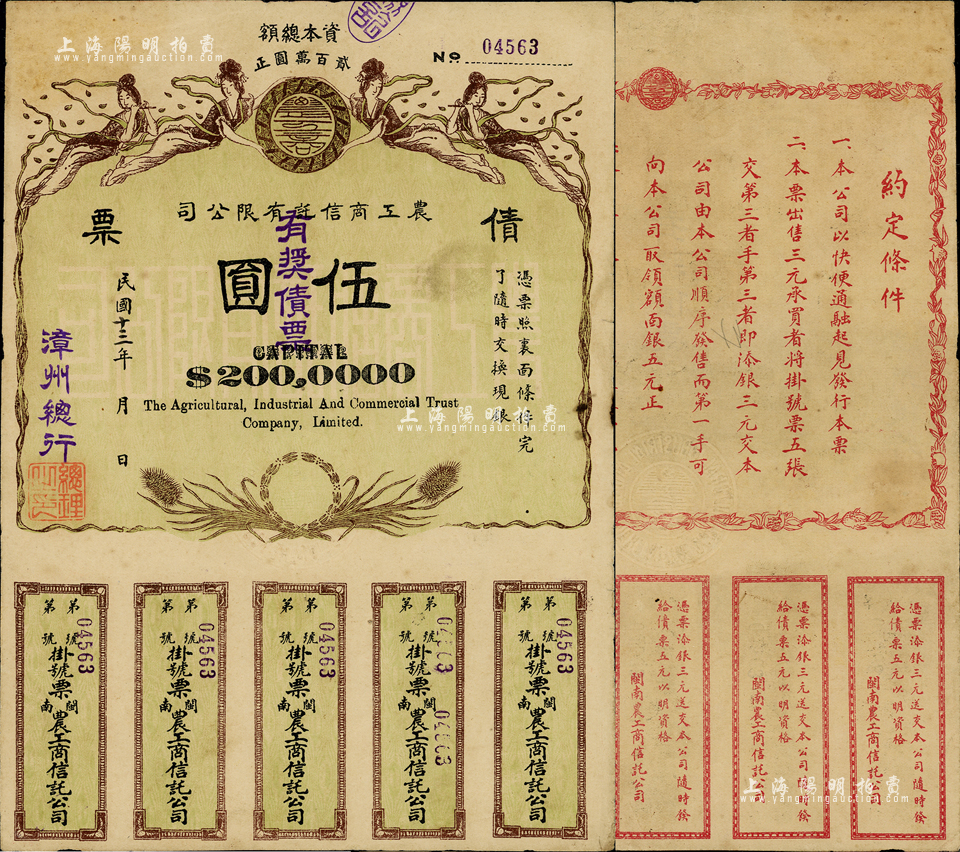 資本總額
貳百萬圓正
No 04563
農工商信託有限公司
債票
伍圓
有獎債票
憑票照裏面條件完
了隨時交換現銀
民國十三年 月 日
漳州總行
總理
CAPITAL
$200,0000
The Agricultural, Industrial And Commercial Trust
Company, Limited.
第 號 掛號票 閩南農工商信託公司
第 04563 號
第 號 掛號票 閩南農工商信託公司
第 04563 號
第 號 掛號票 閩南農工商信託公司
第 04563 號
第 號 掛號票 閩南農工商信託公司
第 04563 號
04563
第 號 掛號票 閩南農工商信託公司
第 04563 號
約定條件
一、本公司以快便通融起見發行本票
二、本票出售三元承買者將掛號票五張
交第三者手第三者即添銀三元交本
公司由本公司順序發售而第一手可
向本公司取領額面銀五元正
憑票添銀三元送交本公司隨時發
給債票五元以明資格
閩南農工商信託公司
憑票添銀三元送交本公司隨時發
給債票五元以明資格
閩南農工商信託公司
憑票添銀三元送交本公司隨時發
給債票五元以明資格
閩南農工商信託公司
上海陽明拍賣
www.yangmingauction.com
上海陽明拍賣
www.yangmingauction.com
上海陽明拍賣
www.yangmingauction.com
上海陽明拍賣
www.yangmingauction.com